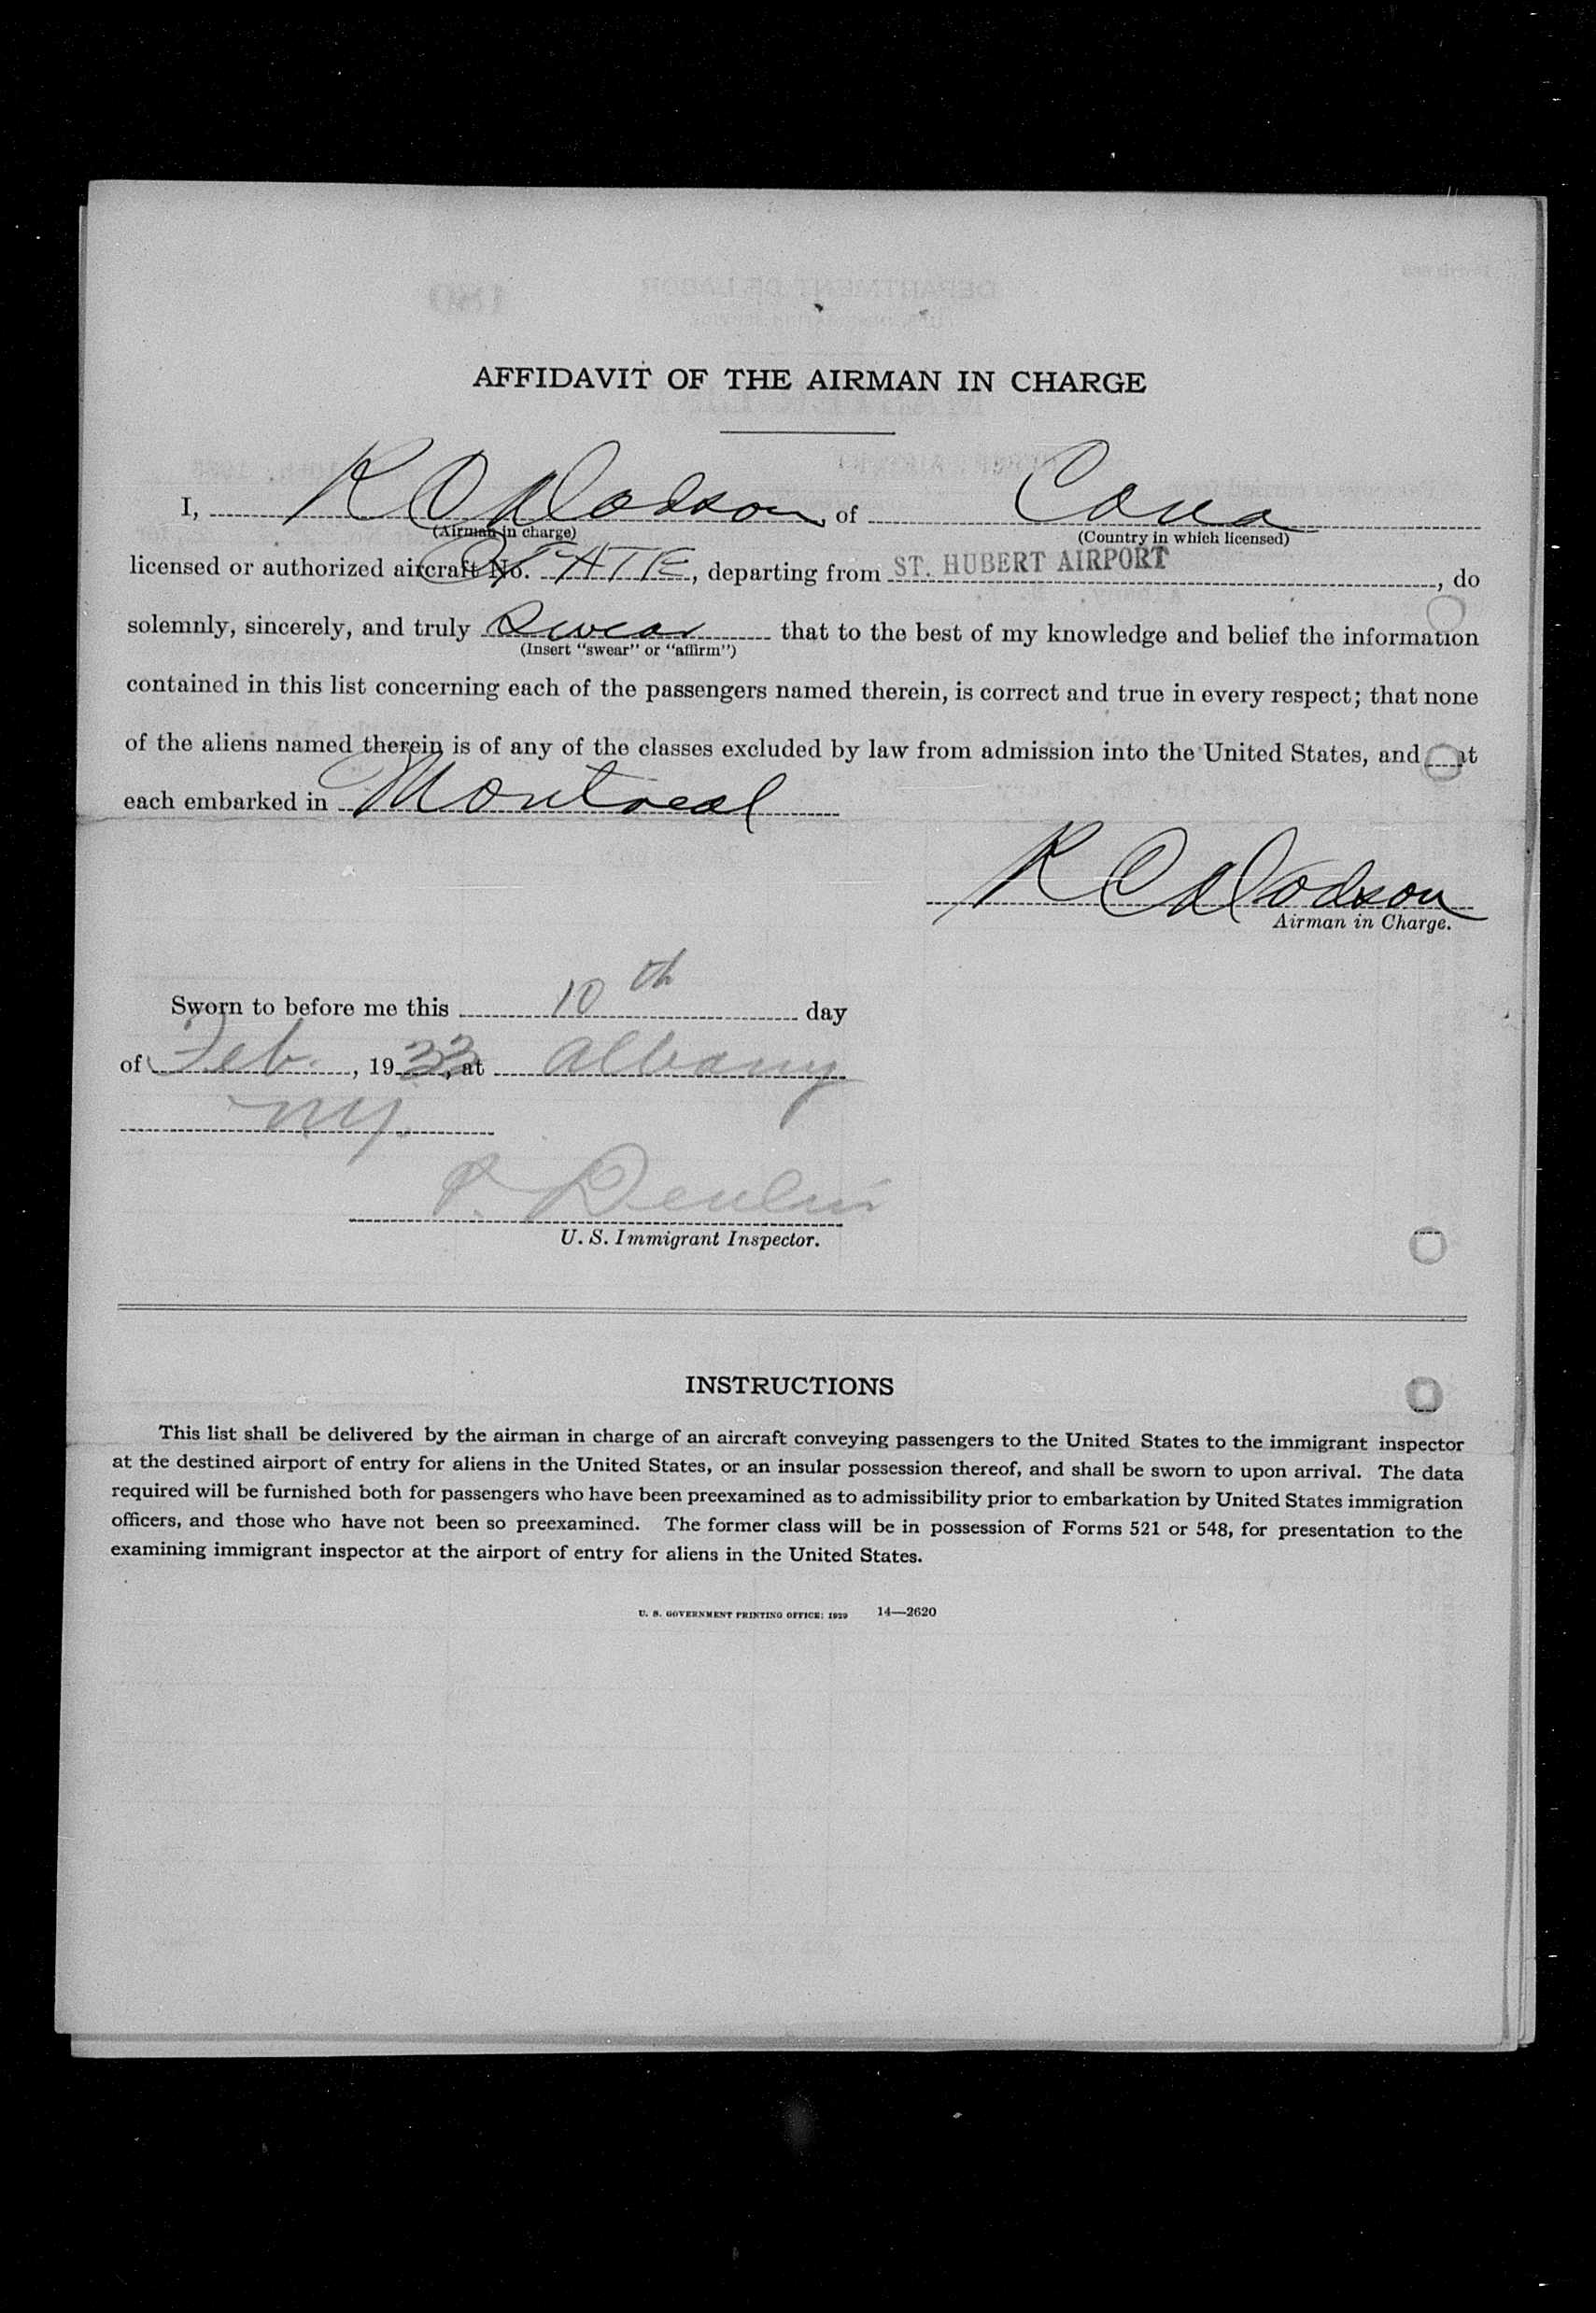 AFFIDAVIT OF THE AIRMAN IN CHARGE
I, R C Dodson, of Cana
(Airman in charge) (Country in which licensed)
licensed or authorized aircraft No. , departing from ST. HUBERT AIRPORT, do
solemnly, sincerely, and truly Swear that to the best of my knowledge and belief the information
(Insert "swear" or "affirm")
contained in this list concerning each of the passengers named therein, is correct and true in every respect; that none
of the aliens named therein is of any of the classes excluded by law from admission into the United States, and at
each embarked in Montreal
R C Dodson
Airman in Charge.
Sworn to before me this 10th day
of Feb., 1933, at Albany
NY.
P. Devlin
U. S. Immigrant Inspector.
INSTRUCTIONS
This list shall be delivered by the airman in charge of an aircraft conveying passengers to the United States to the immigrant inspector
at the destined airport of entry for aliens in the United States, or an insular possession thereof, and shall be sworn to upon arrival. The data
required will be furnished both for passengers who have been preexamined as to admissibility prior to embarkation by United States immigration
officers, and those who have not been so preexamined. The former class will be in possession of Forms 521 or 548, for presentation to the
examining immigrant inspector at the airport of entry for aliens in the United States.
U. S. GOVERNMENT PRINTING OFFICE: 1929 14—2620